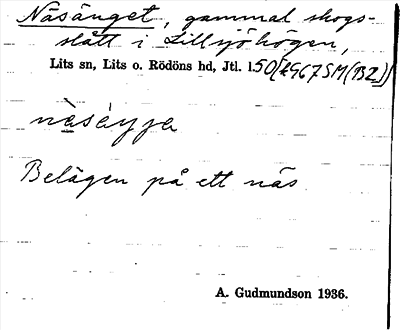 Näsänget, gammal skogs-
slått i Lillsjöhögen,
Lits sn, Lits o. Rödöns hd, Jtl.
Belägen på ett näs
A. Gudmundson 1936.